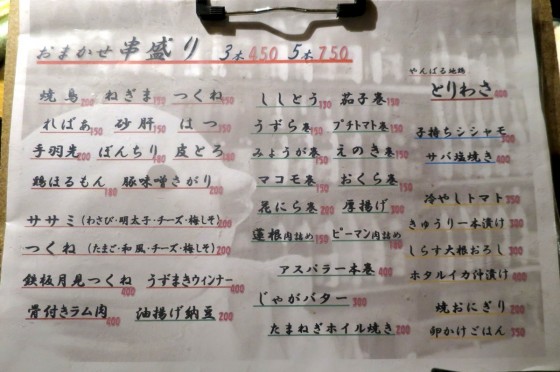 おまかせ 串盛り 3本450 5本750
焼鳥200 ねぎま150 つくね150
ればあ150 砂肝150 はつ150
手羽先200 ぼんちり180 皮とろ180
鶏ほるもん180 豚味噌さがり200
ササミ(わさび・明太子・チーズ・梅しそ)200
つくね(たまご・和風・チーズ・梅しそ)200
鉄板月見つくね400 うずまきウィンナー400
骨付きラム肉400 油揚げ納豆200
ししとう130 茄子巻180
うずら巻150 プチトマト巻150
みょうが巻150 えのき巻150
マコモ巻180 おくら巻150
花にら巻200 厚揚げ300
蓮根肉詰め150 ピーマン肉詰め180
アスパラ一本巻400
じゃがバター300
たまねぎホイル焼き200
やんばる地鶏
とりわさ400
子持ちシシャモ300
サバ塩焼き400
冷やしトマト350
きゅうり一本漬け300
しらす大根おろし300
ホタルイカ沖漬け400
焼おにぎり200
卵かけごはん350